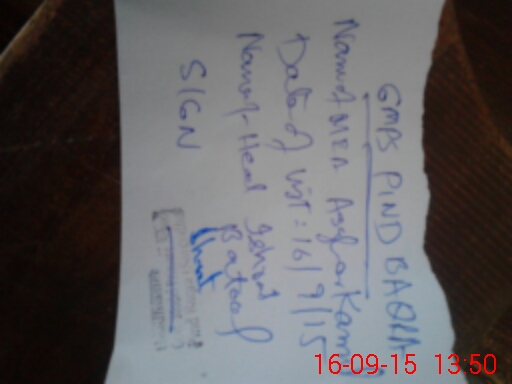 GMPS PIND BAQLA
Name of MEA Asghar Kamal
Date of Visit: 16/9/15
Name of Head
Batool
SIGN
16-09-15 13:50